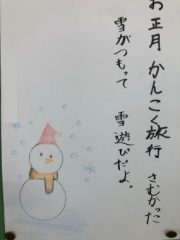 お正月 かんこく旅行 さむかった
雪がつもって 雪遊びだよ。